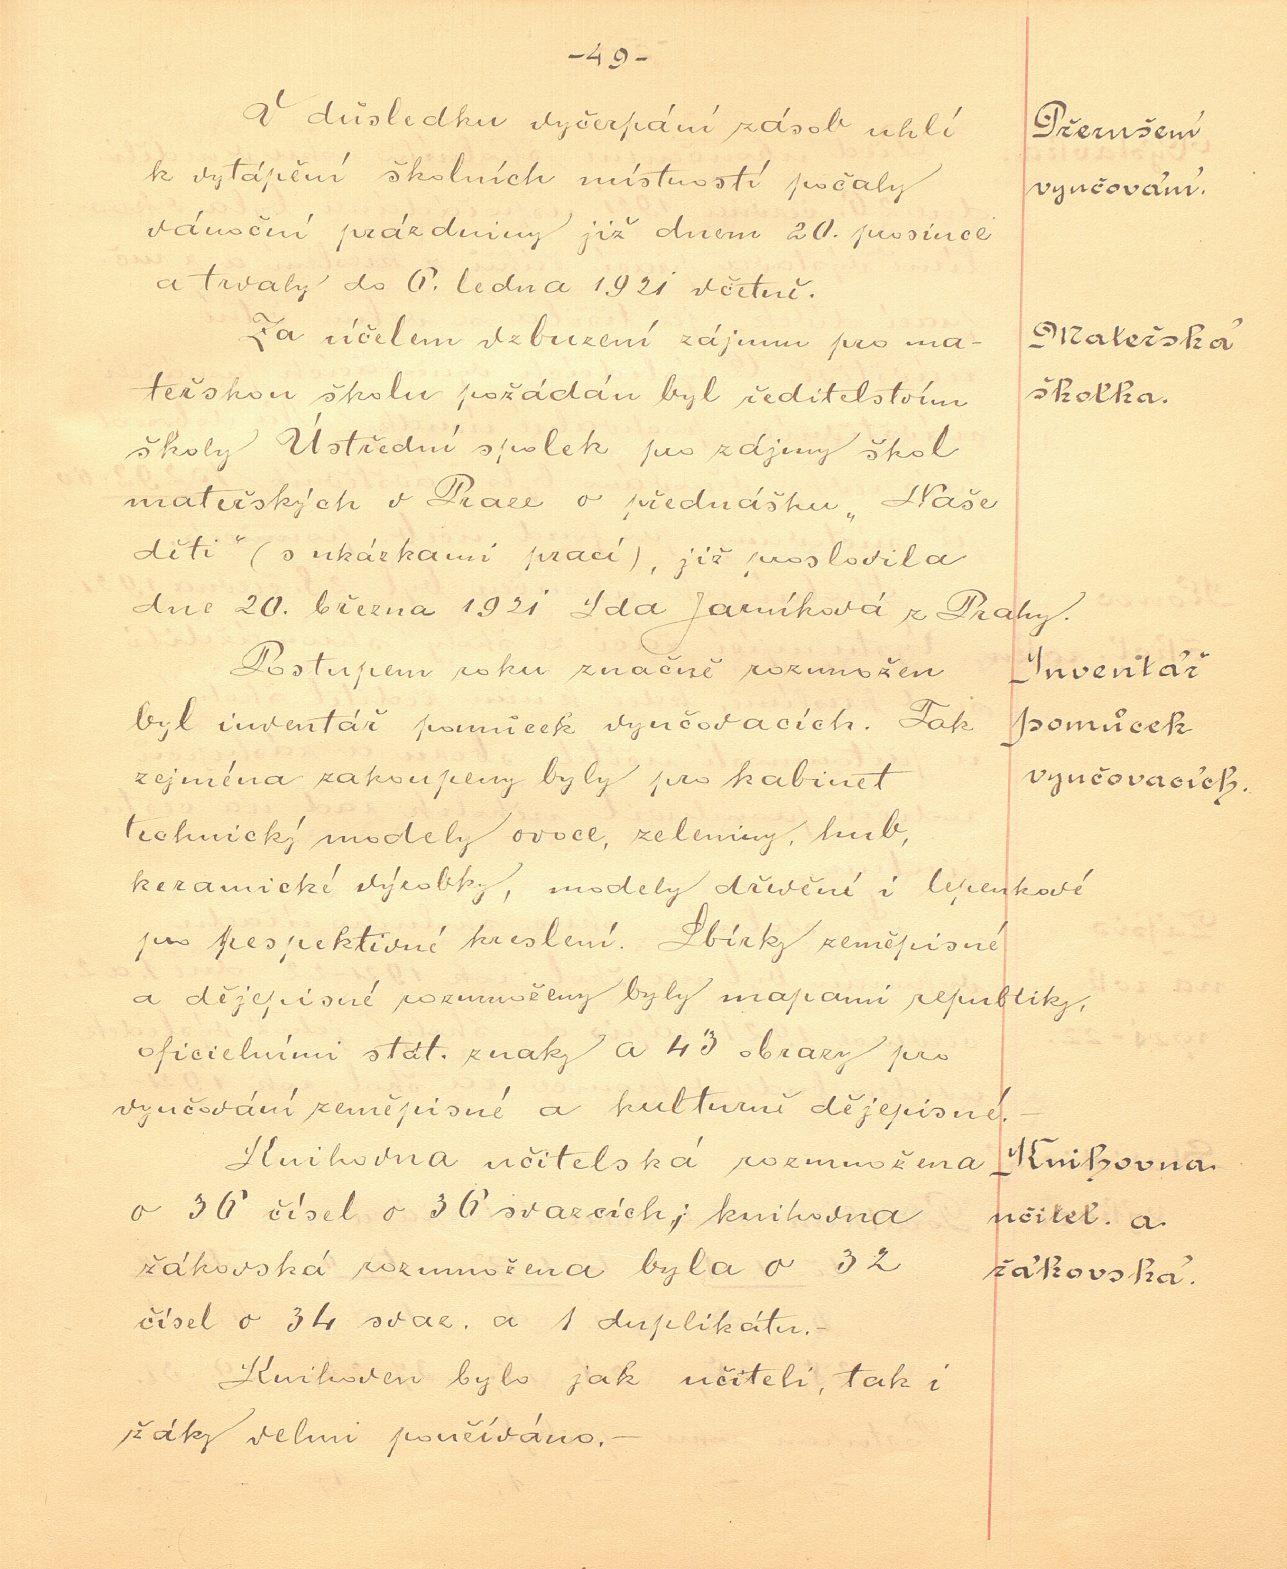 -49-
V důsledku vyčerpání zásob uhlí
k vytápění školních místností počaly
vánoční prázdniny již dnem 20. prosince
a trvaly do 6. ledna 1921 včetně.
Za účelem vzbuzení zájmu pro ma-
teřskou školu požádán byl ředitelstvím
školy Ústřední spolek pro zájmy škol
mateřských v Praze o přednášku „Naše
děti“ (s ukázkami prací), již proslovila
dne 20. března 1921 Ida Jarníková z Prahy.
Postupem roku značně rozmnožen
byl inventář pomůcek vyučovacích. Tak
zejména zakoupeny byly pro kabinet
technický modely ovoce, zeleniny, hub,
keramické výrobky, modely dřevěné i lepenkové
pro pespektivné kreslení. Sbírky zeměpisné
a dějepisné rozmnoženy byly mapami republiky,
oficielními stát. znaky a 43 obrazy pro
vyučování zeměpisné a kulturně dějepisné.-
Knihovna učitelská rozmnožena
o 36 čísel o 36 svazcích; knihovna
žákovská rozmnožena byla o 32
čísel o 34 svaz. a 1 duplikátu.-
Knihoven bylo jak učiteli, tak i
žáky velmi použiváno.-
Přerušení
vyučování.
Mateřská
školka.
Inventář
pomůcek
vyučovacích.
Knihovna
učitel. a
žákovská.